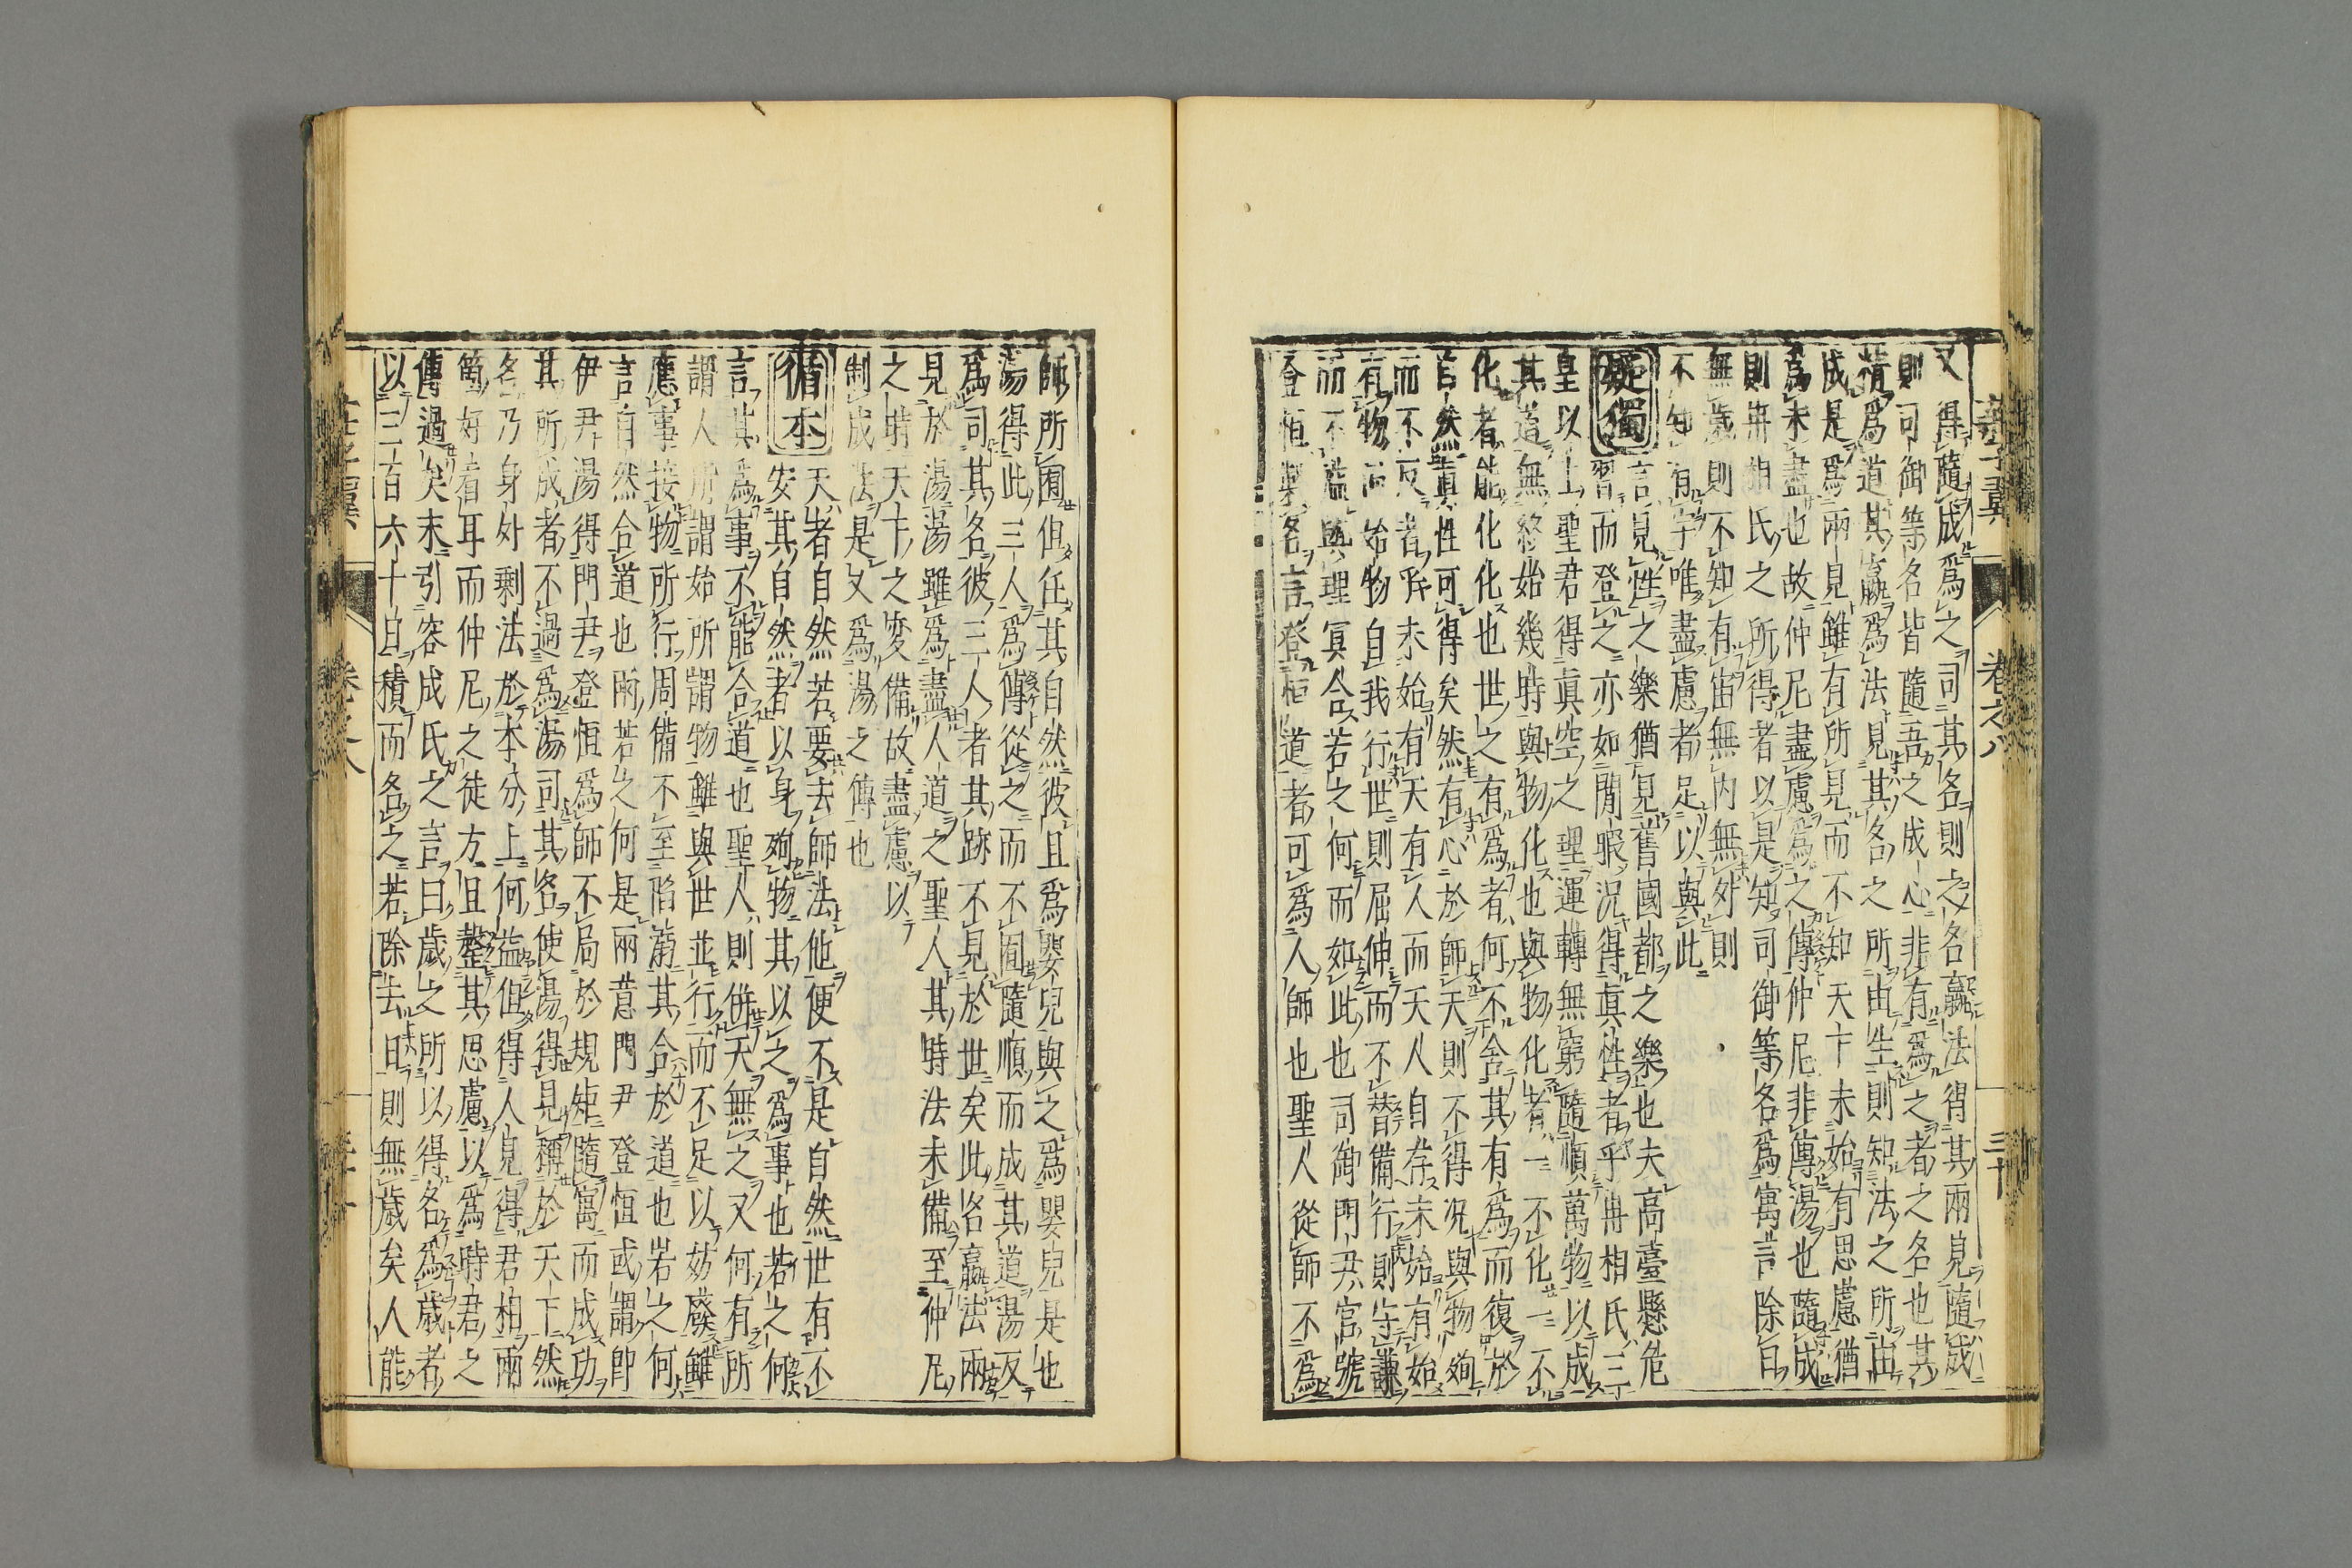 又得隨成爲之司其名則之名贏法得其兩見隨成
則司御等名皆隨吾之成心非有爲之者之名也其
猜爲道其贏爲法見其名之所由生則知法之所由
成是爲兩見雖有所見而不知天下未始有思慮猶
爲未盡也故仲尼盡慮爲之傅仲尼非傅湯也隨成
則冉相氏之所得者以是知司御等名爲寓言除日
無歲則不知有宙無内無外則
不知有宇唯盡慮者足以與此
疑獨 言見性之樂猶見舊國都之樂也夫高臺懸危
習而登之亦如閒暇况得眞性者乎冉相氏三
皇以上聖君得眞空之理運轉無窮隨順萬物以成
其道無終始幾時與物化也與物化者一不化一不
化者能化化也世之有爲者何不舍其有爲而復於
自然眞性可得矣然有心於師天則不得况與物殉
而不反者乎未始有天有人而天人自存未始有始
有物而始物自我行世則屈伸而不替備行則守謙
而不溢與理冥合若之何而如此也司御門尹官號
登恒其名言登恒道者可爲人師也聖人從師不爲
師所囿但任其自然彼且爲嬰兒與之爲嬰兒是也
湯得此三人爲傅從之而不囿隨順而成其道湯反
爲司其名彼三人者其跡不見於世矣此名贏法兩
見於湯湯雖爲盡人道之聖人其時法未備至仲尼
之時天下之変備故盡慮以
制成法是又爲湯之傅也
循本 天者自然若要去師法他便不是自然世有不
安其自然者以身殉物其以之爲事也若之何
言其爲事不能合道也聖人則併天無之又何有所
謂人所謂始所謂物雖與世並行而不足以妨廢雖
應事接物所行周備不至陷溺其合於道也若之何
言自然合道也兩若之何是兩意門尹登恒或謂卽
伊尹湯得門尹登恒爲師不局於規矩隨寓而成功
其所成者不過爲湯司其名使湯得見稱於天下然
名乃身外剩法於本分上何益但得人見得君相兩
箇好看耳而仲尼之徒方且整其思慮以爲時君之
傅過矣末引容成氏之言曰歲之所以得名爲歲者
以三百六十日積而名之若除去日則無歲矣人能
卷之八
三十